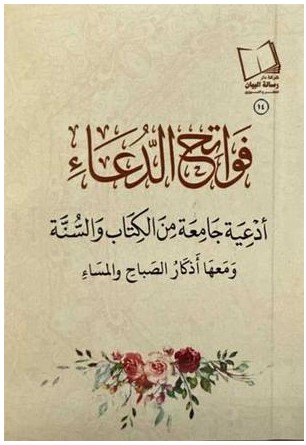 شركة دار
رسالة البيان
للنشر والتوزيع
١٤
فَوَاتِحُ الدُّعَاءِ
أَدْعِيَة جَامِعَة مِنَ الكِتَابِ وَالسُّنَّة
وَمَعَهَا أَذْكَارُ الصَّبَاحِ وَالمَسَاءِ